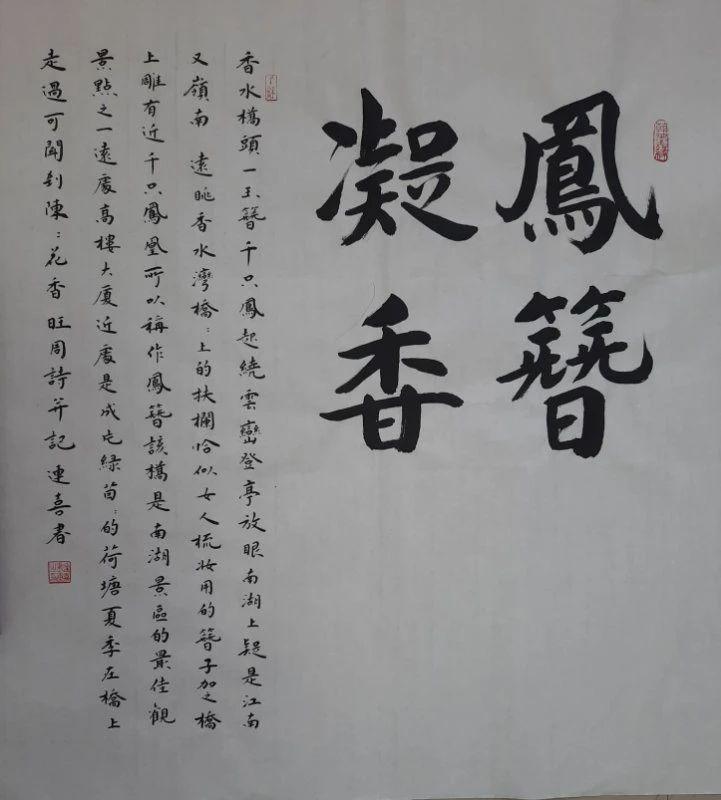 鳳簪
凝香
香水橋頭一玉簪千只鳳起繞雲巒登亭放眼南湖上疑是江南
又嶺南 遠眺香水灣橋：上的扶欄恰似女人梳妝用的簪子加之橋
上雕有近千只鳳凰所以稱作鳳簪該橋是南湖景區的最佳觀
景點之一遠處高樓大廈近處是成片綠茵：的荷塘夏季在橋上
走過可聞到陳：花香旺周詩並記連喜書